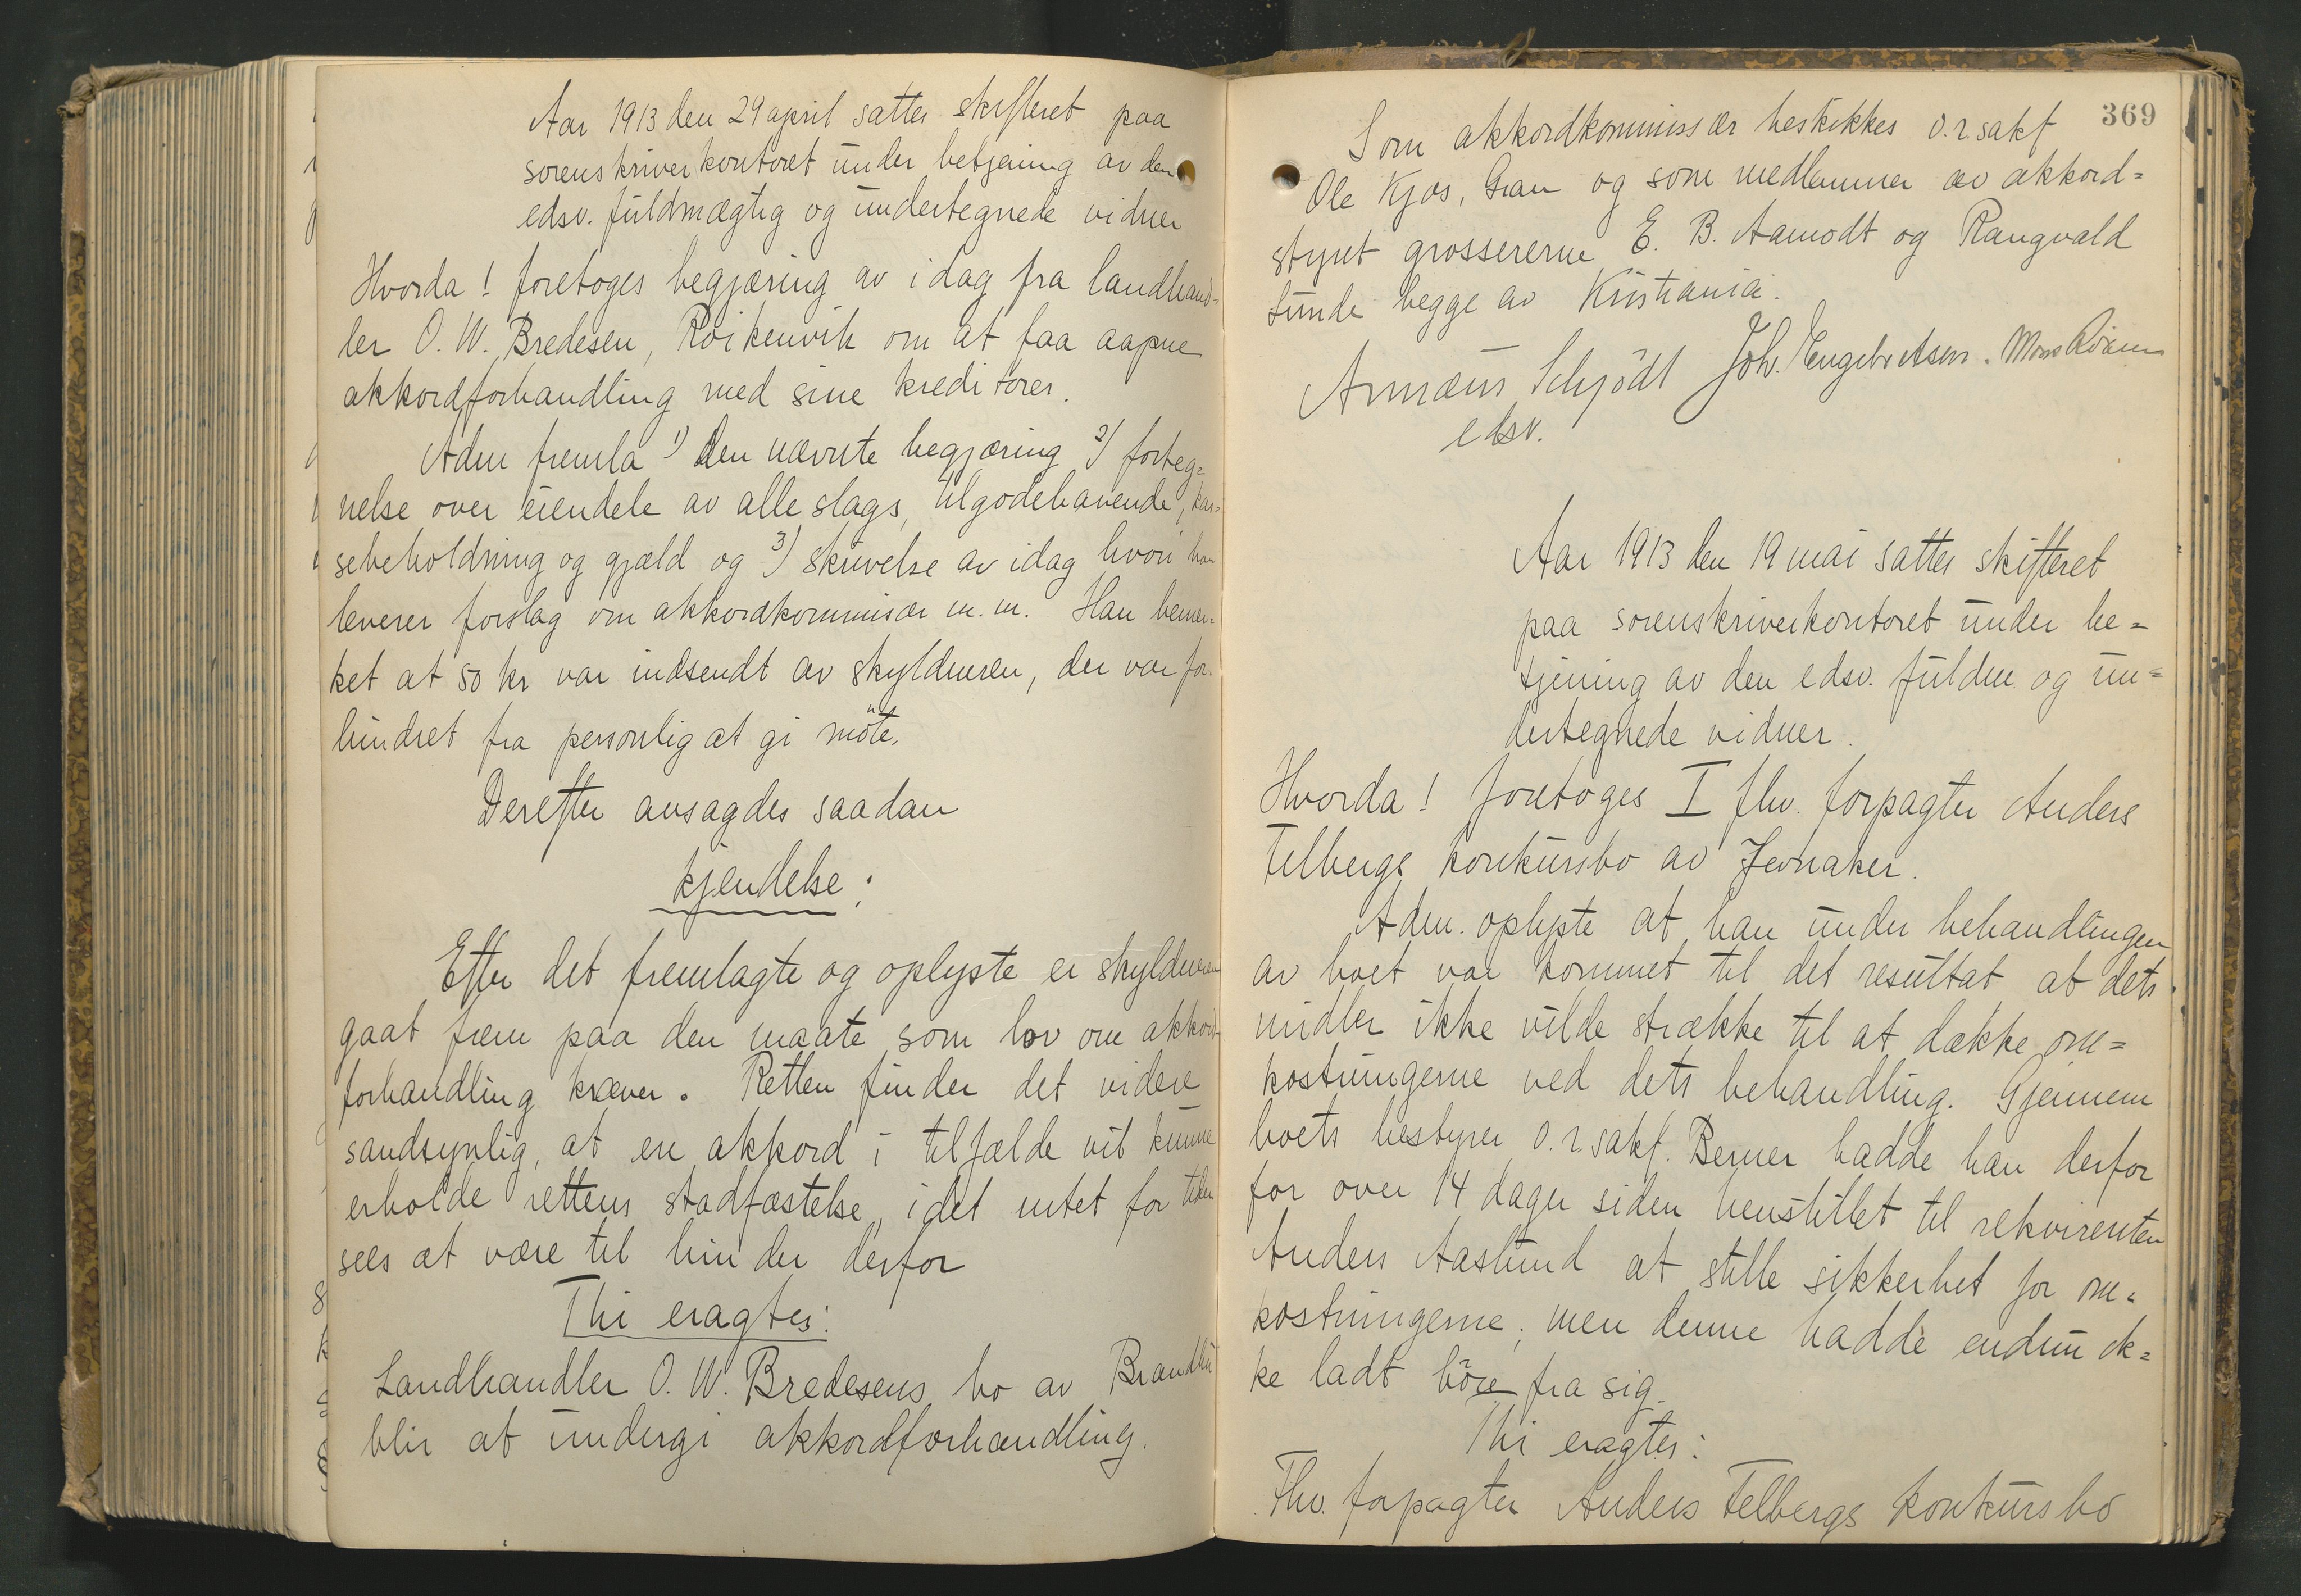 Aar 1913 den 29 april sattes skifteret paa
sorenskriverkontoret under betjening av den
edsv. fuldmægtig og undertegnede vidner
Hvorda! foretoges begjæring av idag fra landhand-
ler O. W. Bredesen, Röikenvik om at faa aapne
akkordforhandling med sine kreditorer.
Adm fremla 1) Den nævnte begjæring 2) forteg=
nelse over eiendele av alle slags, tilgodehavende, kas=
sebeholdning og gjæld og 3) skrivelse av idag hvori han
leverer forslag om akkordkommisær m.m. Han bemær-
ket at 50 kr var indsendt av skyldneren, der var for-
hindret fra personlig at gi möte.
Derefter avsagdes saadan
kjendelse:
Efter det fremlagte og oplyste er skyldneren
gaat frem paa den maate som lov om akkord-
forhandling kræver. Retten finder det videre
sandsynlig, at en akkord i tilfælde vil kunne
erholde rettens stadfæstelse, idet intet for tiden
sees at være til hinder derfor
Thi eragtes:
Landhandler O. W. Bredesens bo av Brandbu
blir at undergi akkordforhandling.
369
Som akkordkommissær beskikkes o.r.sakf
Ole Kjos, Gran og som medlemmer av akkord=
styret grossererne E. B. Aamodt og Rangvald
Sunde begge av Kristiania.
Annæus Schjödt Joh. Engebretsen. Mons
edsv.
Aar 1913 den 19 mai sattes skifteret
paa sorenskriverkontoret under be=
tjening av den edsv. fuldm. og un=
dertegnede vidner.
Hvorda! foretoges I fhv. forpagter Anders
Felbergs konkursbo av Jevnaker.
Adm. oplyste at han under behandlingen
av boet var kommet til det resultat at dets
midler ikke vilde strække til at dække om=
kostningerne ved dets behandling. Gjennem
boets bestyrer o.r.sakf. Berner hadde han derfor
for over 14 dager siden henstillet til rekvirenten
Anders Aaslund at stille sikkerhet for om=
kostningerne; men denne hadde endnu ik=
ke ladt höre fra sig.
Thi eragtes:
Fhv. forpagter Anders Felbergs konkursbo